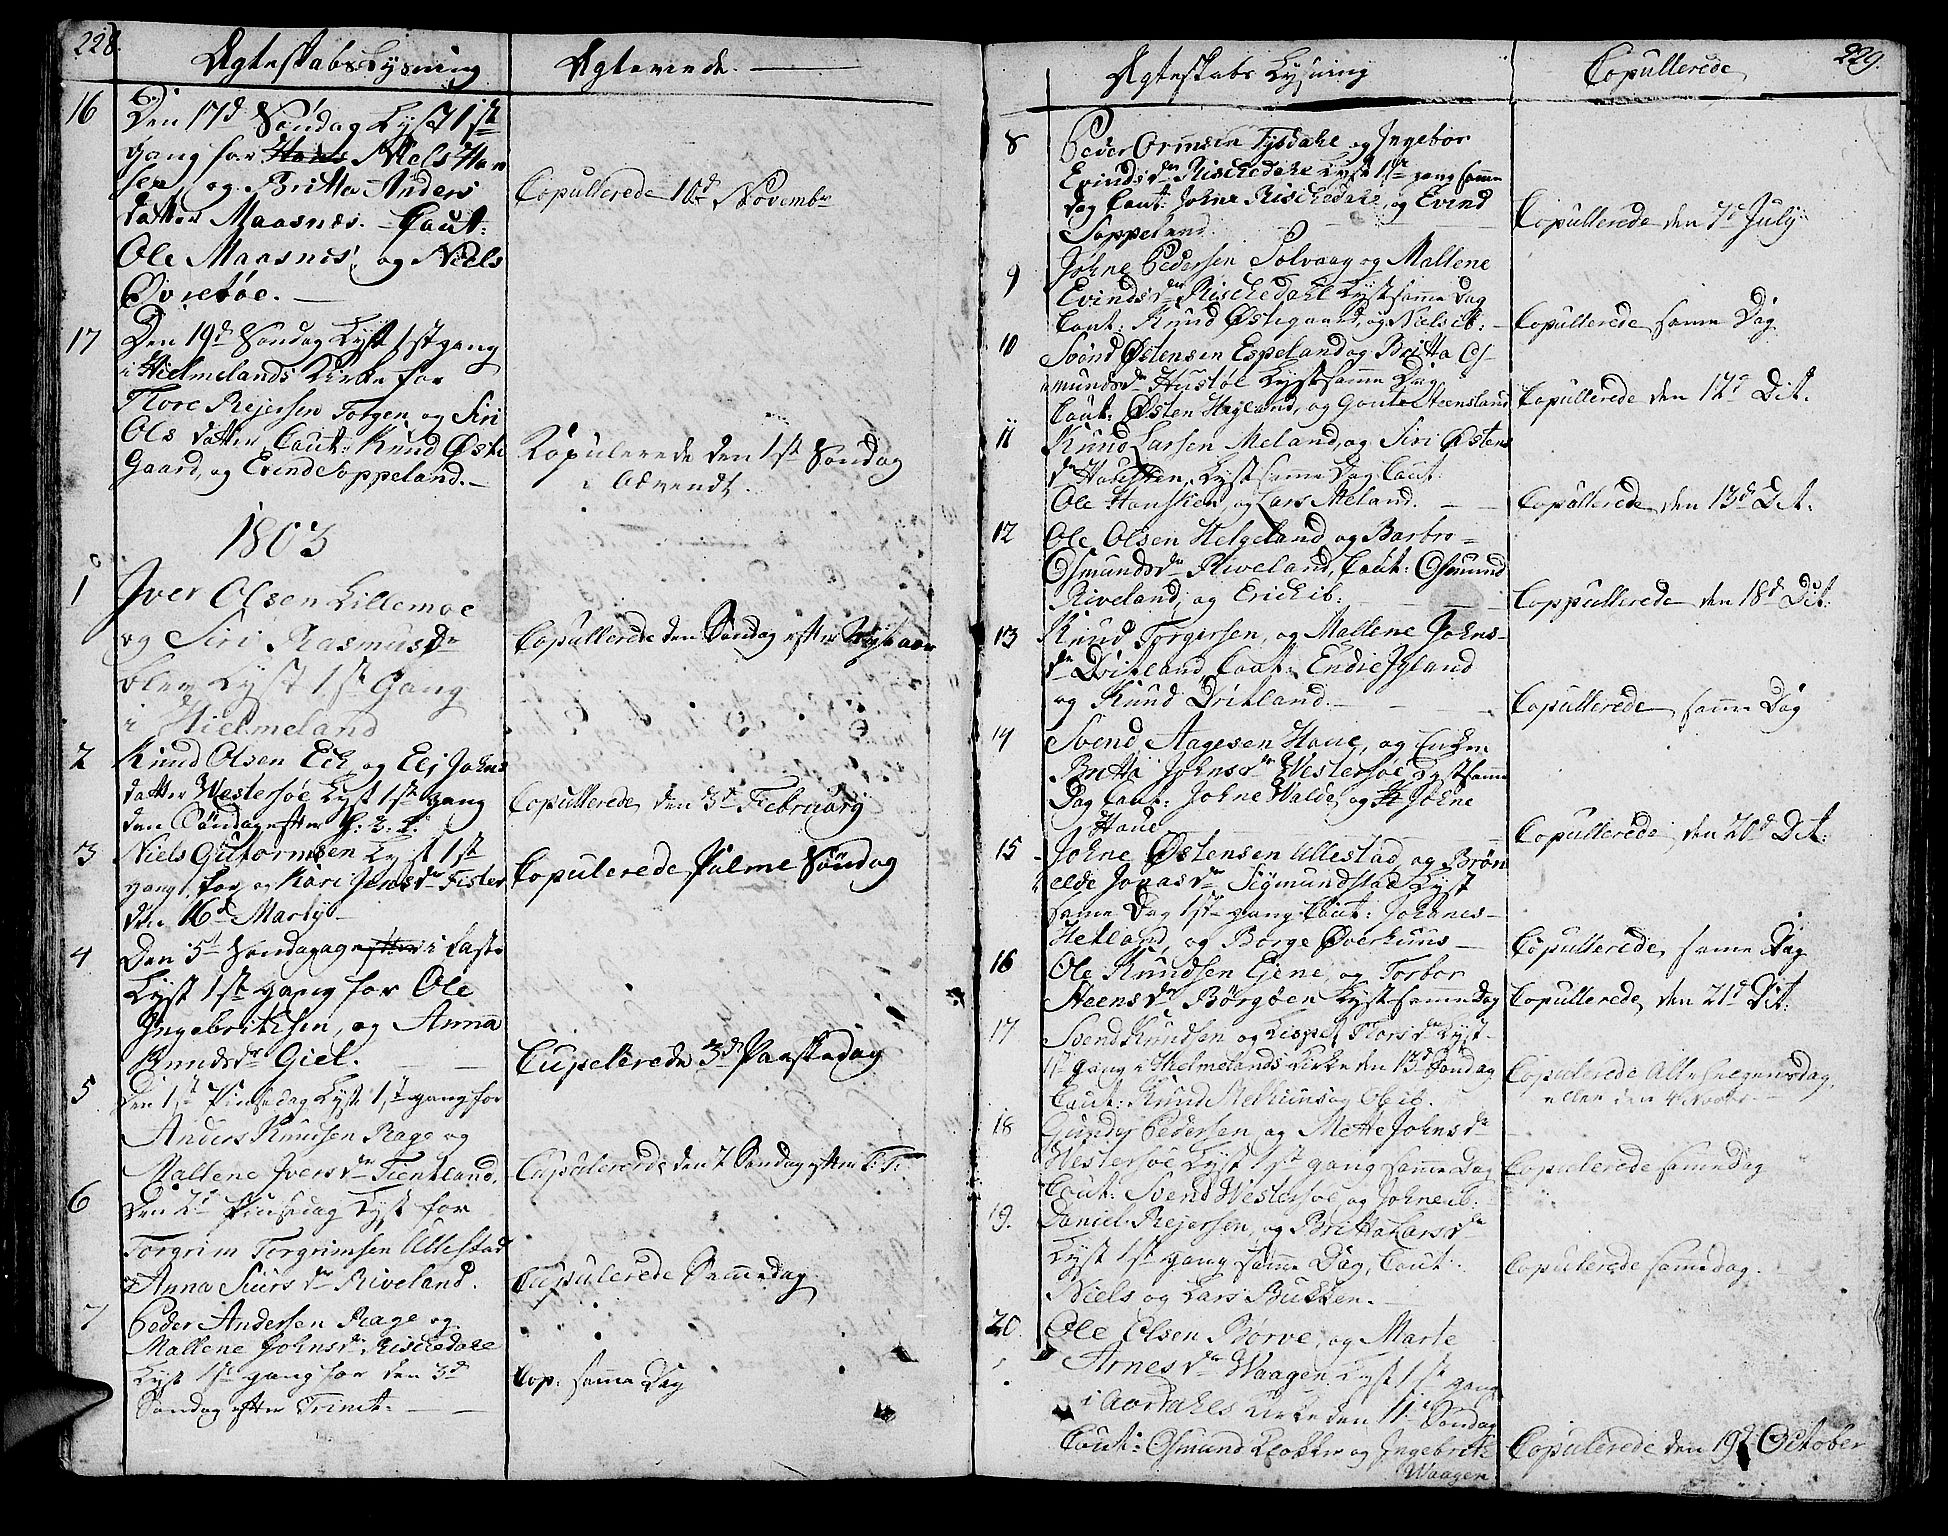 228.
Ægteskabs Lysning
Ægteviede.
16
Den 17d Søndag Lyst 1st
gang for Hans Niels Han
sen, og Britta Anders
datter Maasnes. Caut:
Ole Maasnes, og Niels
Øvretøe.
Copullerede 10d Novembr
17
Den 19d Søndag Lyst 1st gang
i Hielmelands Kirke for
Tore Rejersen Torgen og Siri
Ols datter, Caut: Knud Øste
Gaard, og Evind Soppeland.
Kopulerede den 1st Søndag
i Advendt.
1803
1
Iver Olsen Lillemoe
og Siri Rasmusdr
Lyst 1st Gang
i Hielmeland
Copullerede den Søndag efter Nytaar
2
Knud Olsen Eck og Eli Johns
datter Westersøe Lyst 1st gang
den Søndag efter
Copullerede den 3d Februarij
3
Niels Gutormsen Lyst 1st
gang for og Kari Jensdr Fister
den 16d Martij
Copulerede Palme Søndag
4
Den 5t Søndag efter i Faste
Lyst 1st gang for Ole
Ingebritsen, og Anna
Knudsdr Giel.
Cupelerede 3d Paaskedag
5
Den 1st Pinsedag Lyst 1st gang for
Anders Knudsen Rage og
Mallene Iversdr Fientland.
Cupulerede den 2 Søndag efter T:
6
Den 2d Pinsedag Lyst for
Torgrim Torgrimsen Ullestad
og Anna Siursdr Riveland.
Cupulerede Sammedag
7
Peder Andersen Rage og
Mallene Johnsdr Rischedale
Lyst 1st gang for den 3d
Søndag efter Trinit.
Cop: samme Dag
229.
Ægteskabs Lysning
Copullerede
8
Peder Ormsen Tysdahl og Ingebor
Evindsdr Rischedahl Lyst 1st gang samme
Dag Caut: Johne Rischedahl, og Evind
Soppeland.
Copullerede den 7d July
9
Johne Pedersen Solvaag og Mallene
Evindsdr Rischedahl Lyst samme Dag
Caut: Knud Østegaard, og Niels ib:
Copullerede samme Dag
10
Svend Østensen Espeland og Britta Os-
mundsdr Hustøe Lyst samme Dag
Caut: Østen Høyland, og Goute Steensland
Copullerede den 12d Dit.
11
Knud Larsen Meland, og Siri Østens
dr Lyst samme Dag Caut:
Ole Hansken, og Lars Meland.
Copullerede den 13d Dit.
12
Ole Olsen Helgeland og Barbro
Osmundsdr Riveland, Caut: Osmund
Riveland, og Erich ib:
Coppullerede den 18d Dit:
13
Knud Torgersen, og Mallene Johns-
dr Øritland, Caut: Endre Jøland
og Knud Øritland.
Copullerede samme Dag
14
Svend Aagesen Haue, og Enken
Britta Johnsdr Westersøe Lyst samme
Dag Caut: Johne Walde, og Johne
Haue
Copullerede, den 20d Dit:
15
Johne Østensen Ullestad, og Brøn
elde Jonasdr Sigmundstad Lyst
samme Dag 1st gang Caut: Johnnes
Hetland, og Børge Øverhuus
Copullerede, samme Dag
16
Ole Knudsen Ejene, og Torbor
Steensdr Børgøen Lyst samme Dag
Copullerede, den 21d Dit:
17
Svend Knudsen og Lispet Torsdr Lyst
1st gang i Hielmelands Kirke den 13d Søndag
Caut: Knud Melhuus og Ole ib.
Copulerede Allehelgensdag,
eller den 4 Novbr.
18
Gunder Pedersen, og Mette Johnsdr
Westersøe Lyst 1st gang samme Dag
Caut: Svend Westersøe og Johne ib:
Copulerede samme dag
19.
Daniel Rejersen, og Britta Larsdr
Lyst 1st gang samme Dag, Caut:
Niels og Lars Bukken.
Copulerede samme dag.
20
Ole Olsen Børve, og Marte
Arnesdr Waagen Lyst 1st gang
i Aardahls Kirke den 11d Søndag
Caut: Osmund Klokker og Ingebrit
Waagen
Copulerede den 19d October